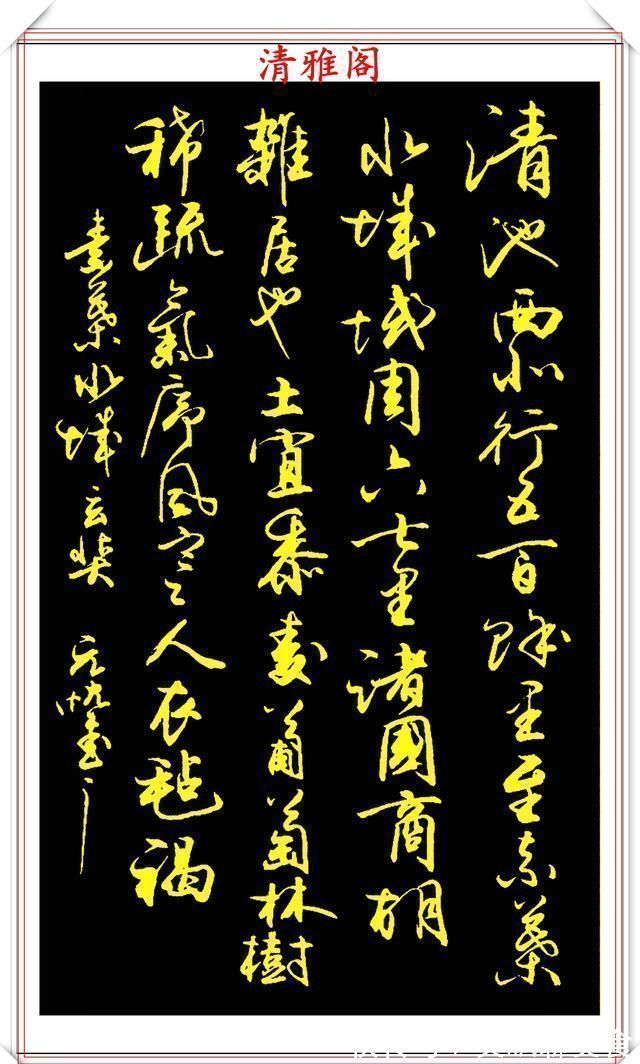 清雅阁
清池西北行五百餘里至素葉
水城城周六七里諸國商胡
雜居也土宜黍麦葡萄林樹
稀疏氣序風寒人衣毡褐
素葉水城玄奘